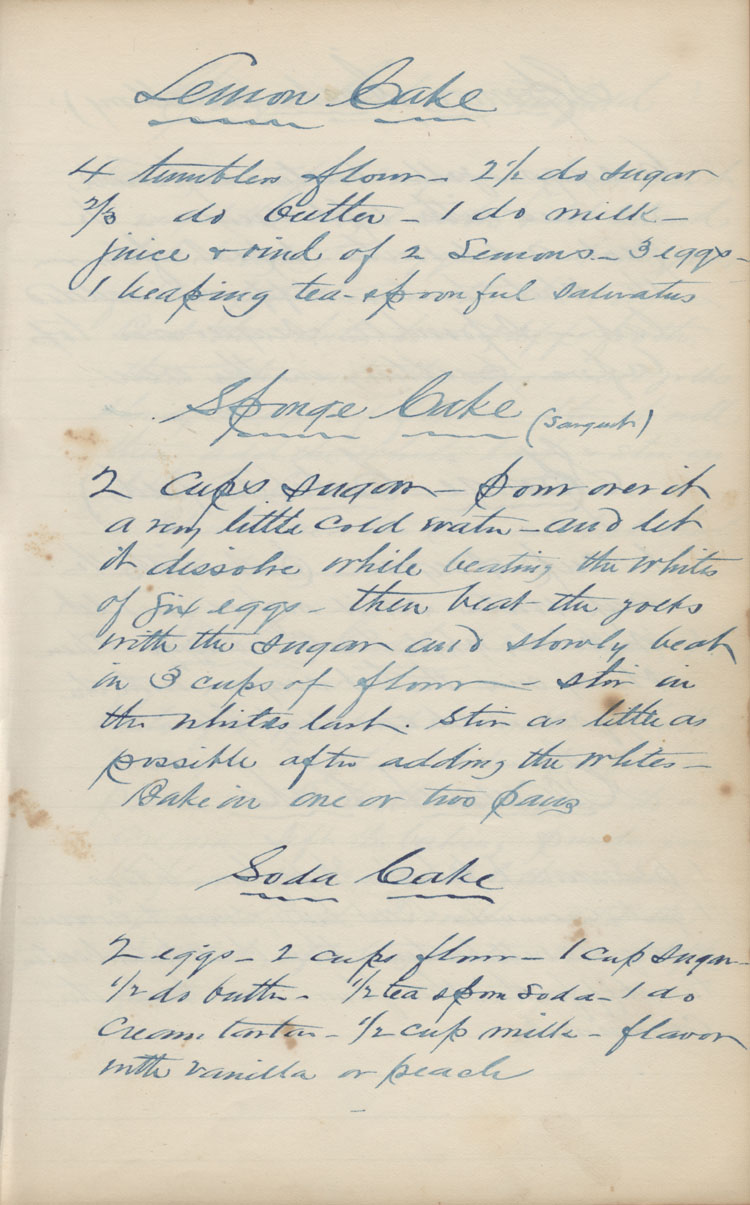 Lemon Cake
4 tumblers flour – 2 1/2 do sugar
2/3 do butter – 1 do milk –
juice & rind of 2 Lemons – 3 eggs –
1 heaping tea-spoonful saleratus
Sponge Cake
2 cups sugar – pour over it
a very little cold water – and let
it dissolve while beating the whites
of six eggs – then beat the yoeks
with the sugar and slowly beat
in 3 cups of flour – stir in
the whites last. Stir as little as
possible after adding the whites –
Bake in one or two pans
Soda Cake
2 eggs – 2 cups flour – 1 cup sugar –
1/2 do butter – 1/2 tea spoon Soda – 1 do
Cream tartar – 1/2 cup milk – flavor
with vanilla or peach